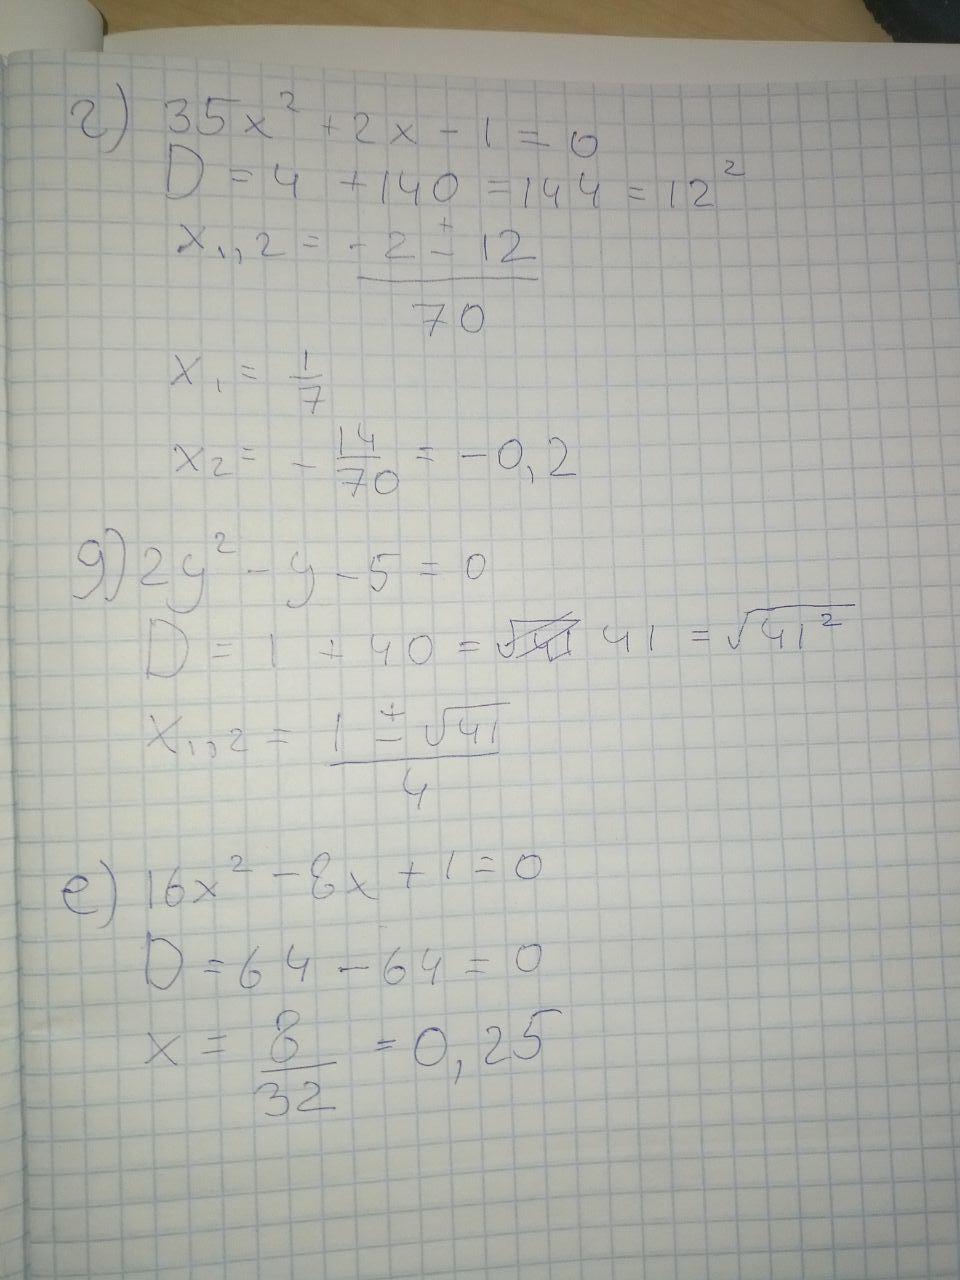 г) 35x² + 2x - 1 = 0
D = 4 + 140 = 144 = 12²
x₁,₂ = (-2 ± 12) / 70
x₁ = 1/7
x₂ = - 14/70 = -0,2
g) 2y² - y - 5 = 0
D = 1 + 40 = 41 = √41²
x₁,₂ = (1 ± √41) / 4
e) 16x² - 8x + 1 = 0
D = 64 - 64 = 0
x = 8/32 = 0,25